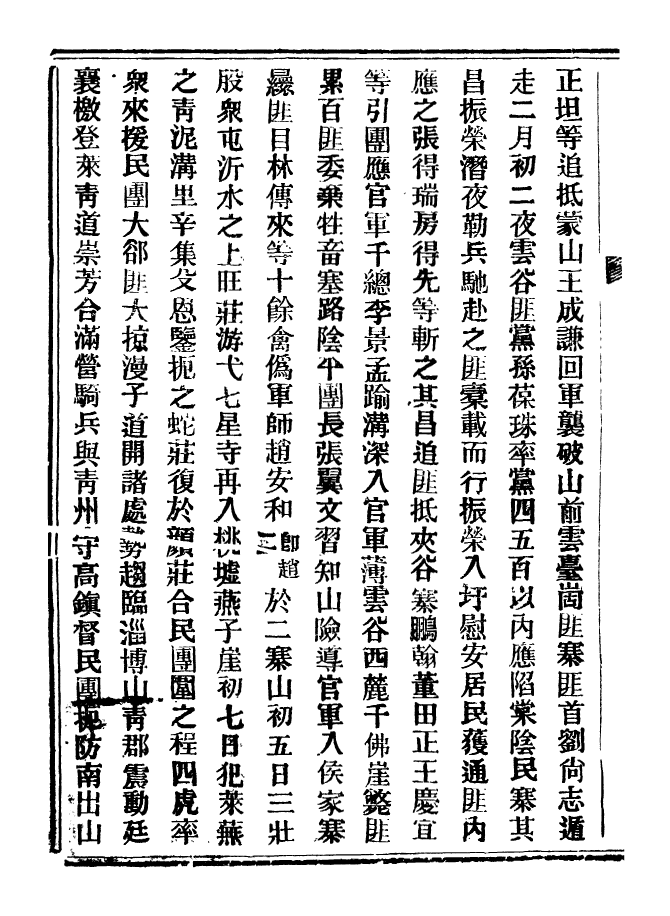 正坦等追抵蒙山王成謙回軍襲破山前雲臺崮匪寨匪首劉尚志遁
走二月初二夜雲谷匪黨孫葆珠率黨四五百以内應陷棠陰民寨其
昌振榮潛夜勒兵馳赴之匪橐載而行振榮入圩慰安居民獲通匪内
應之張得瑞房得先等斬之其昌追匪抵夾谷寨鵬翰董田正王慶宜
等引團應官軍千總李景孟踰溝深入官軍薄雲谷西麓千佛崖斃匪
累百匪委棄牲畜塞路陰平團長張翼文習知山險導官軍入侯家寨
縣匪目林傳來等十餘禽僞軍師趙安和卽趙三於二寨山初五日三壯
股衆屯沂水之上旺莊游弋七星寺再入桃墟燕子崖初七日犯萊蕪
之靑泥溝里辛集文恩鑒扼之蛇莊復於顏莊合民團圍之程四虎率
衆來援民團大郤匪大掠漫子道開諸處勢趨臨淄博山靑郡震動廷
襄檄登萊靑道崇芳合滿營騎兵與靑州守高鎭督民團扼防南出山